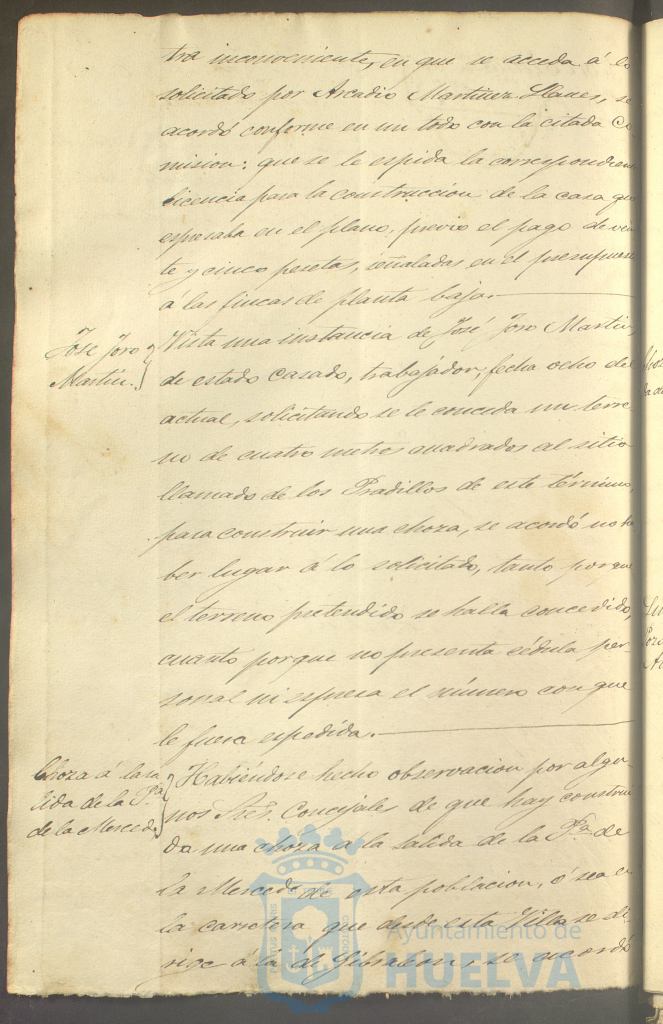 tra inconveniente, en que se acceda á lo
solicitado por Arcadio Martinez Llanes, se
acordó conforme en un todo con la citada Co
mision: que se le espida la correspondien
licencia para la construccion de la casa que
espresaba en el plano, previo el pago de vein
te y cinco pesetas, señaladas en el presupuest
á las fincas de planta baja.
Jose Toro y
Martin.
Vista una instancia de José Toro Martin,
de estado casado, trabajador, fecha ocho del
actual, solicitando se le conceda un terre
no de cuatro metros cuadrados al sitio
llamado de los Pradillos de este término,
para construir una choza, se acordó no ha
ber lugar á lo solicitado, tanto porque
el terreno pretendido se halla concedido,
cuanto porque no presenta cédula per
sonal ni espresa el número con que
le fuera espedida.
Choza á la sa
lida de la Pza
de la Merced
Habiéndose hecho observacion por algu
nos Sres. Concejales de que hay construi
da una choza á la salida de la Pza de
la Merced de esta poblacion, ó sea en
la carretera que desde esta Villa se di
rige á la de Gibraleon, se acordó
Ayuntamiento de
HUELVA